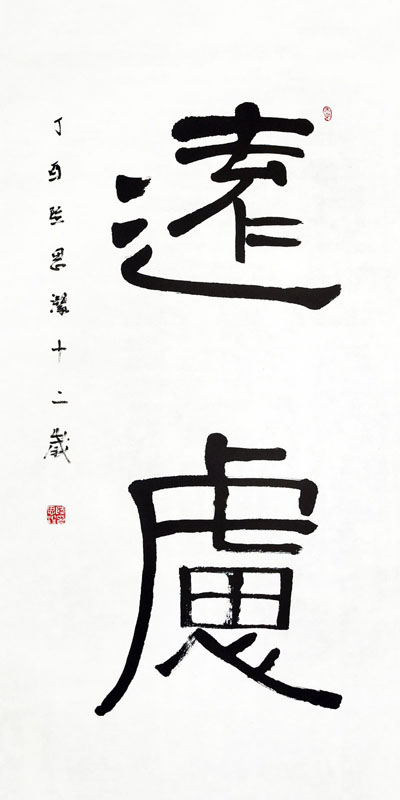 遠慮
丁酉思十二歲